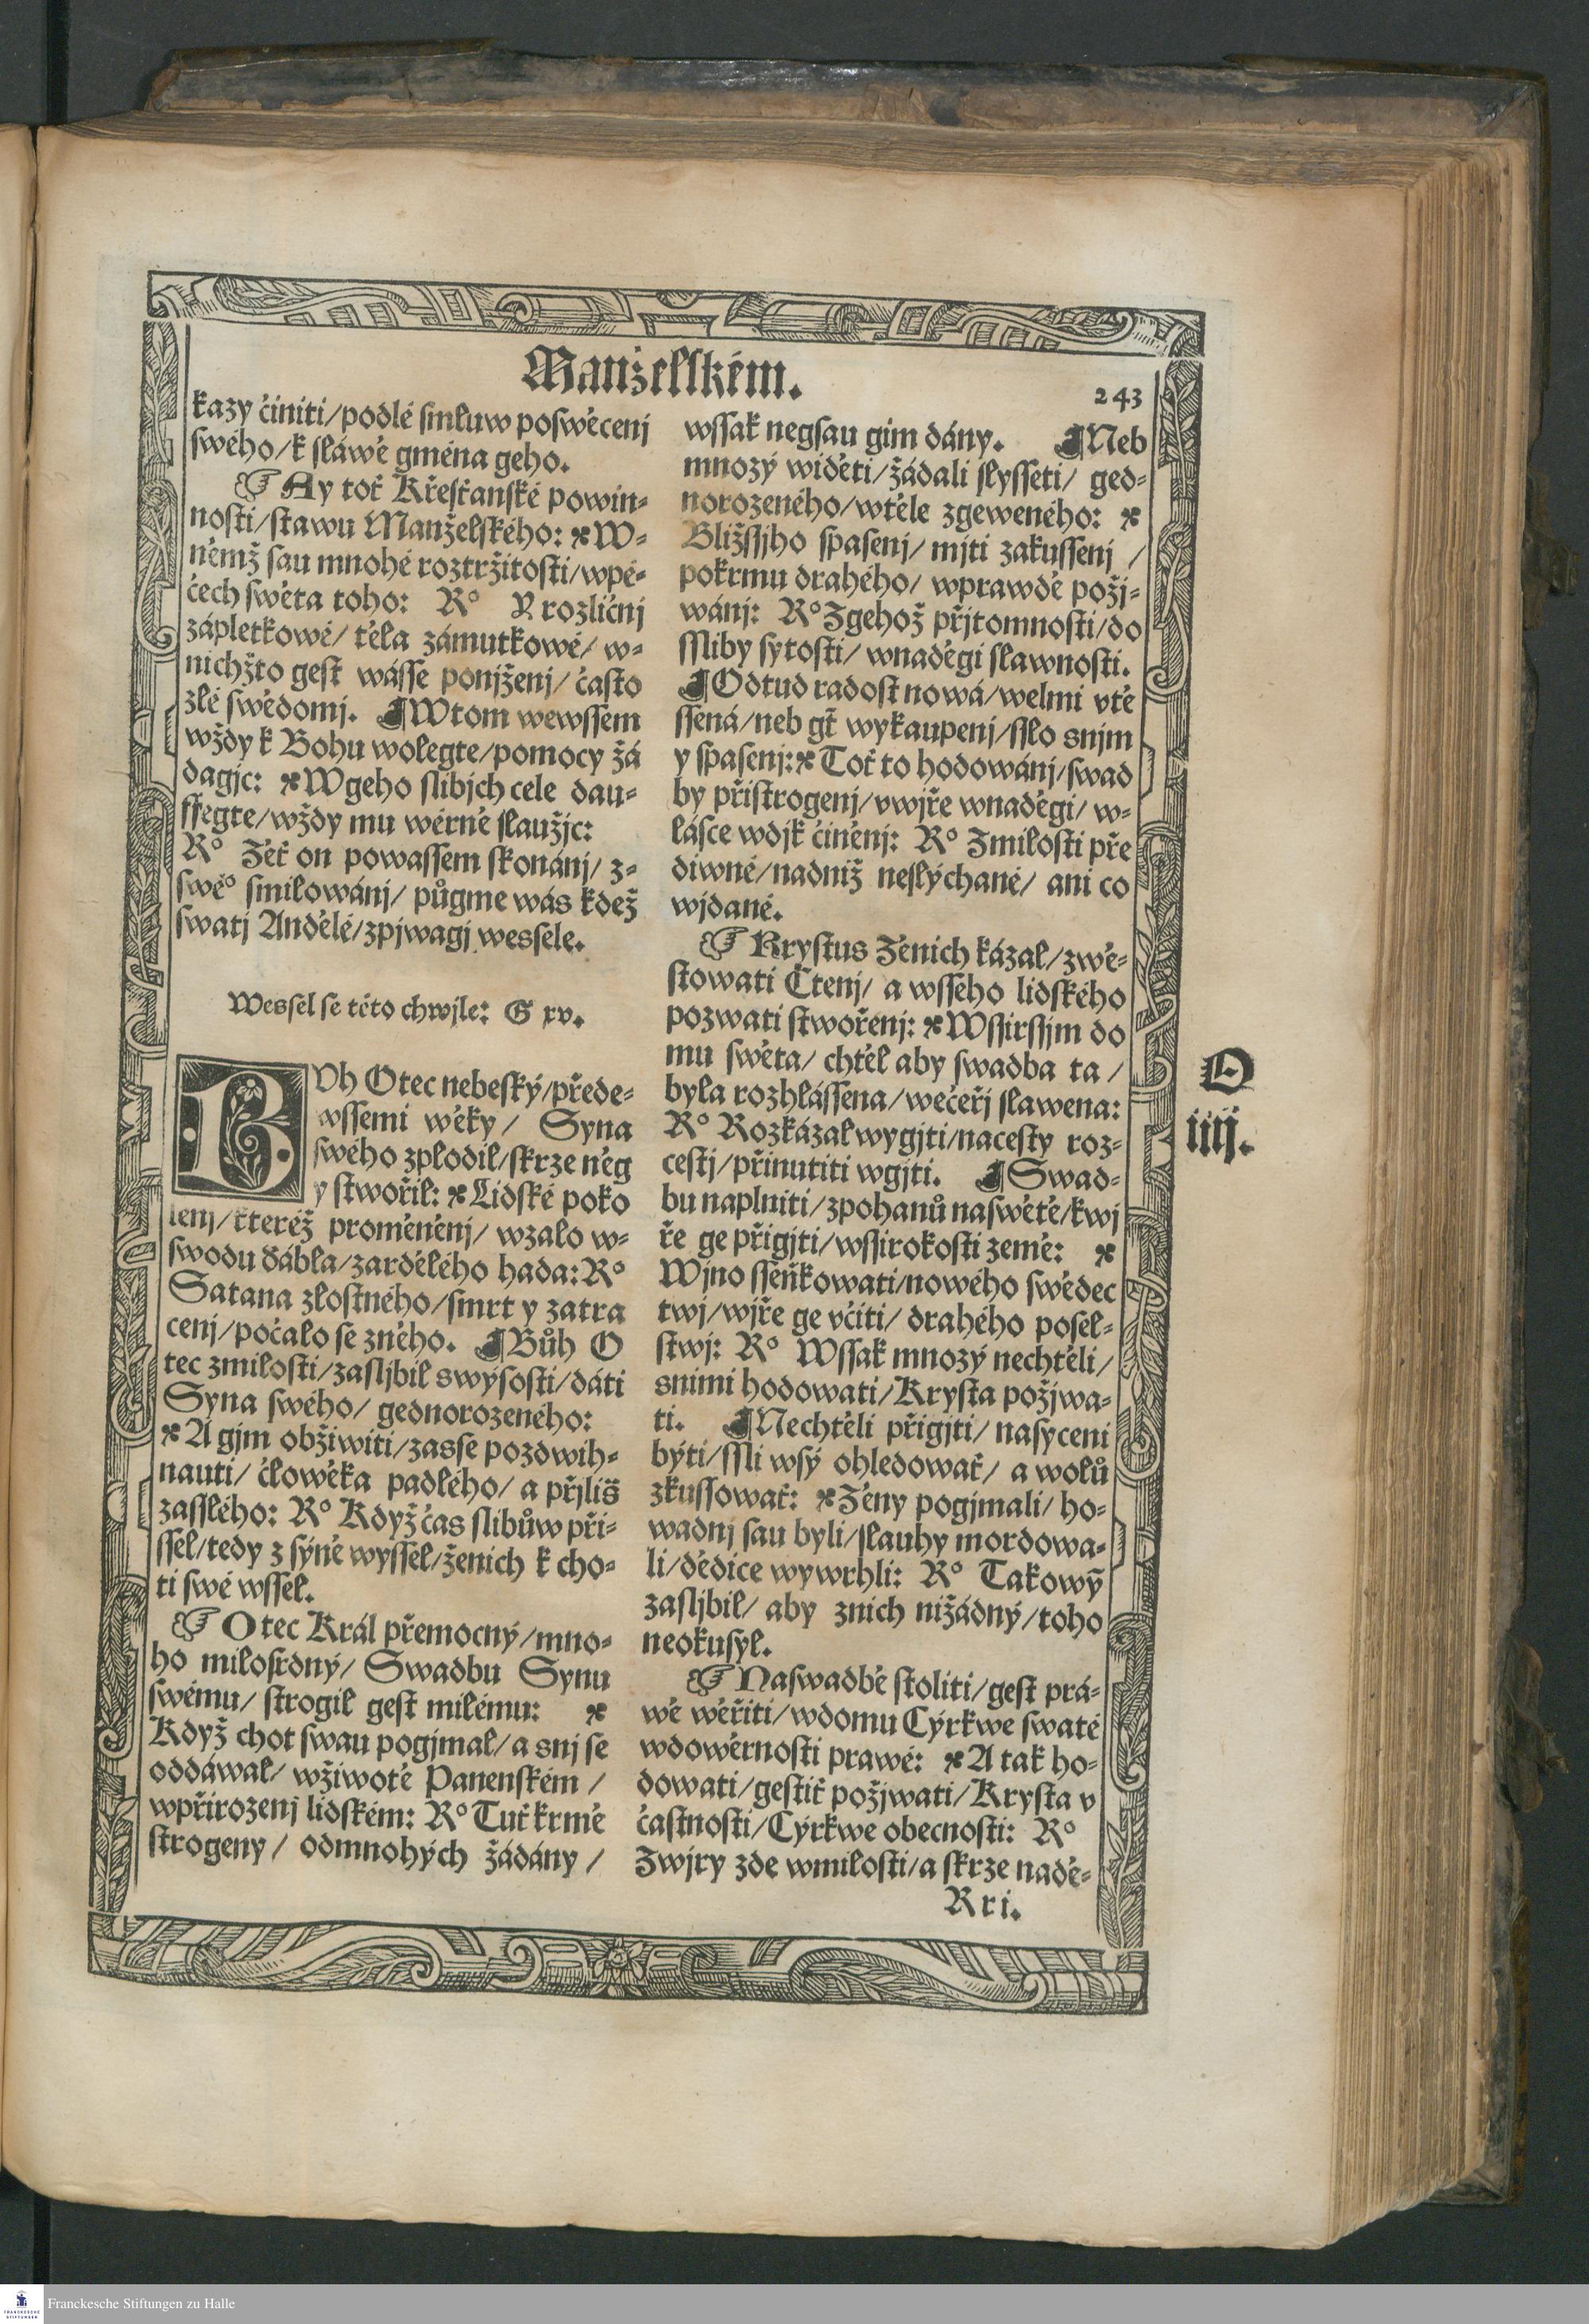 Manželském.
243
kazy činiti/podlé smluw poswěcenj
swého/k sláwě gména geho.
☞ Ay toť Křesťanské powin⸗
nosti/stawu Manželského: W⸗
němž sau mnohé roztržitosti/wpé⸗
čech swěta toho: R° Y rozličnj
zápletkowé/ těla zámutkowé/ w⸗
nichžto gest wásse ponjženj/ často
zlé swědomj. ¶Wtom wewssem
wždy k Bohu wolegte/pomocy žá
dagjc: Wgeho slibjch cele dau⸗
ffegte/wždy mu wěrně slaužjc:
R° Žeť on powassem skonánj/ z⸗
swé° smilowánj/ půgme wás kdež
swatj Andělé/zpjwagj wessele.
Wessel se této chwjle: G xv.
BVh Otec nebeský/přede⸗
wssemi wěky/ Syna
swého zplodil/skrze něg
y stwořil: Lidské poko
lenj/kteréž proměněnj/ wzalo w⸗
swodu ďábla/zardělého hada: R°
Satana zlostného/smrt y zatra
cenj/počalo se zného. ¶Bůh O
tec zmilosti/zasljbil swýsosti/dáti
Syna swého/ gednorozeného:
A gjm obžiwiti/zasse pozdwih⸗
nauti/ člowěka padlého/ a přjlis̈
zasslého: R° Když čas slibůw při⸗
ssel/tedy z sýně wyssel/ženich k cho⸗
ti swé wssel.
☞ Otec Král přemocný/mno⸗
ho milosrdný/ Swadbu Synu
swému/ strogil gest milému:
Když chot swau pogjmal/a snj se
oddáwal/ wžiwotě Panenském /
wpřirozenj lidském: R° Tuť krmě
strogeny/ odmnohých žádány /
wssak negsau gim dány. ¶Neb
mnozý widěti/žádali slysseti/ ged⸗
norozeného/wtěle zgeweného:
Bližssjho spasenj/ mjti zakussenj /
pokrmu drahého/ wprawdě požj⸗
wánj: R° Zgehož přjtomnosti/do
ssliby sytosti/ wnaděgi slawnosti.
¶Odtud radost nowá/welmi vtě
ssená/neb gt̃ wykaupenj/sslo snjm
y spasenj: Toť to hodowánj/swad
by přistrogenj/vwjře wnaděgi/ w⸗
lásce wdjk činěnj: R° Zmilosti pře
diwné/nadniž neslýchané/ ani co
wjdané.
☞ Krystus Ženich kázal/zwě⸗
stowati Čtenj/ a wsseho lidského
pozwati stwořenj: Wssirssjm do
mu swěta/ chtěl aby swadba ta /
byla rozhlássena/wečeřj slawena:
R° Rozkázal wygjti/nacesty roz⸗
cestj/přinutiti wgjti. ¶Swad⸗
bu naplniti/zpohanů naswětě/kwj
ře ge přigjti/wssirokosti země:
Wjno sseňkowati/nowého swědec
twj/wjře ge včiti/ drahého posel⸗
stwj: R° Wssak mnozý nechtěli/
snimi hodowati/Krysta požjwa⸗
ti. ¶Nechtěli přigjti/ nasyceni
býti/ssli wsý ohledowať/ a wolů
zkussowať: Ženy pogjmali/ ho⸗
wadnj sau byli/slauhy mordowa⸗
li/dědice wywrhli: R° Takowỹ
zasljbil/ aby znich nižádný/toho
neokusyl.
☞ Naswadbě stoliti/gest prá⸗
wě wěřiti/wdomu Cýrkwe swaté
wdowěrnosti prawé: A tak ho⸗
dowati/gestiť požjwati/Krysta v
častnosti/Cýrkwe obecnosti: R°
Zwjry zde wmilosti/a skrze nadě⸗
Rri.
O
iiij.
Franckesche Stiftungen zu Halle
FRANCKESCHE
STIFTUNGEN